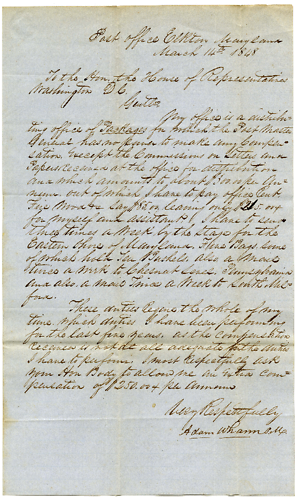 Post Office Elkton Maryland
March 14th 1848
To the Hon. the House of Representatives
Washington D.C.
Gents
My office is a distribu
ting office of Packages for which the Post Master
General has no power to make any Compen
sation except the Commissions on Letters and
Papers received at the office for distribution
and which amounts to about $ per
out of which I have to pay office rent
Fire Wood &
for myself and assistant. I have to send
three times a week by the Stage for the
Eastern Shore of Maryland. Three Bags, some
of which hold also a
times a week to Pennsylvania
and also a twice a week to
These duties require the whole of my
time, which duties I have been performing
for the last five years, as the compensation
received is not adequate to the duties
I have to perform. I most Respectfully ask
your Hon Body to allow me an extra com
pensation of $250.00 per annum
Very Respectfully
Adam Whann P.M.